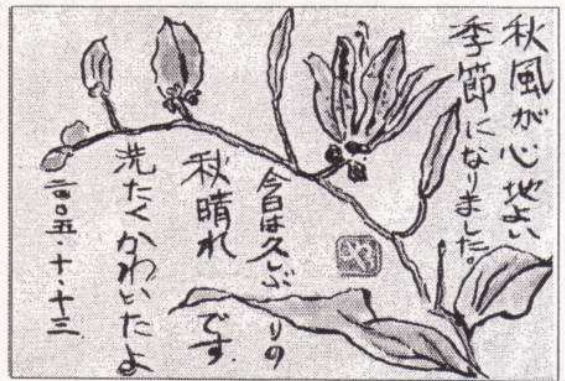 秋風が心地よい
季節になりました。
今日は久しぶりの
秋晴れです
洗たくかわいたよ
二〇〇五・十・十三